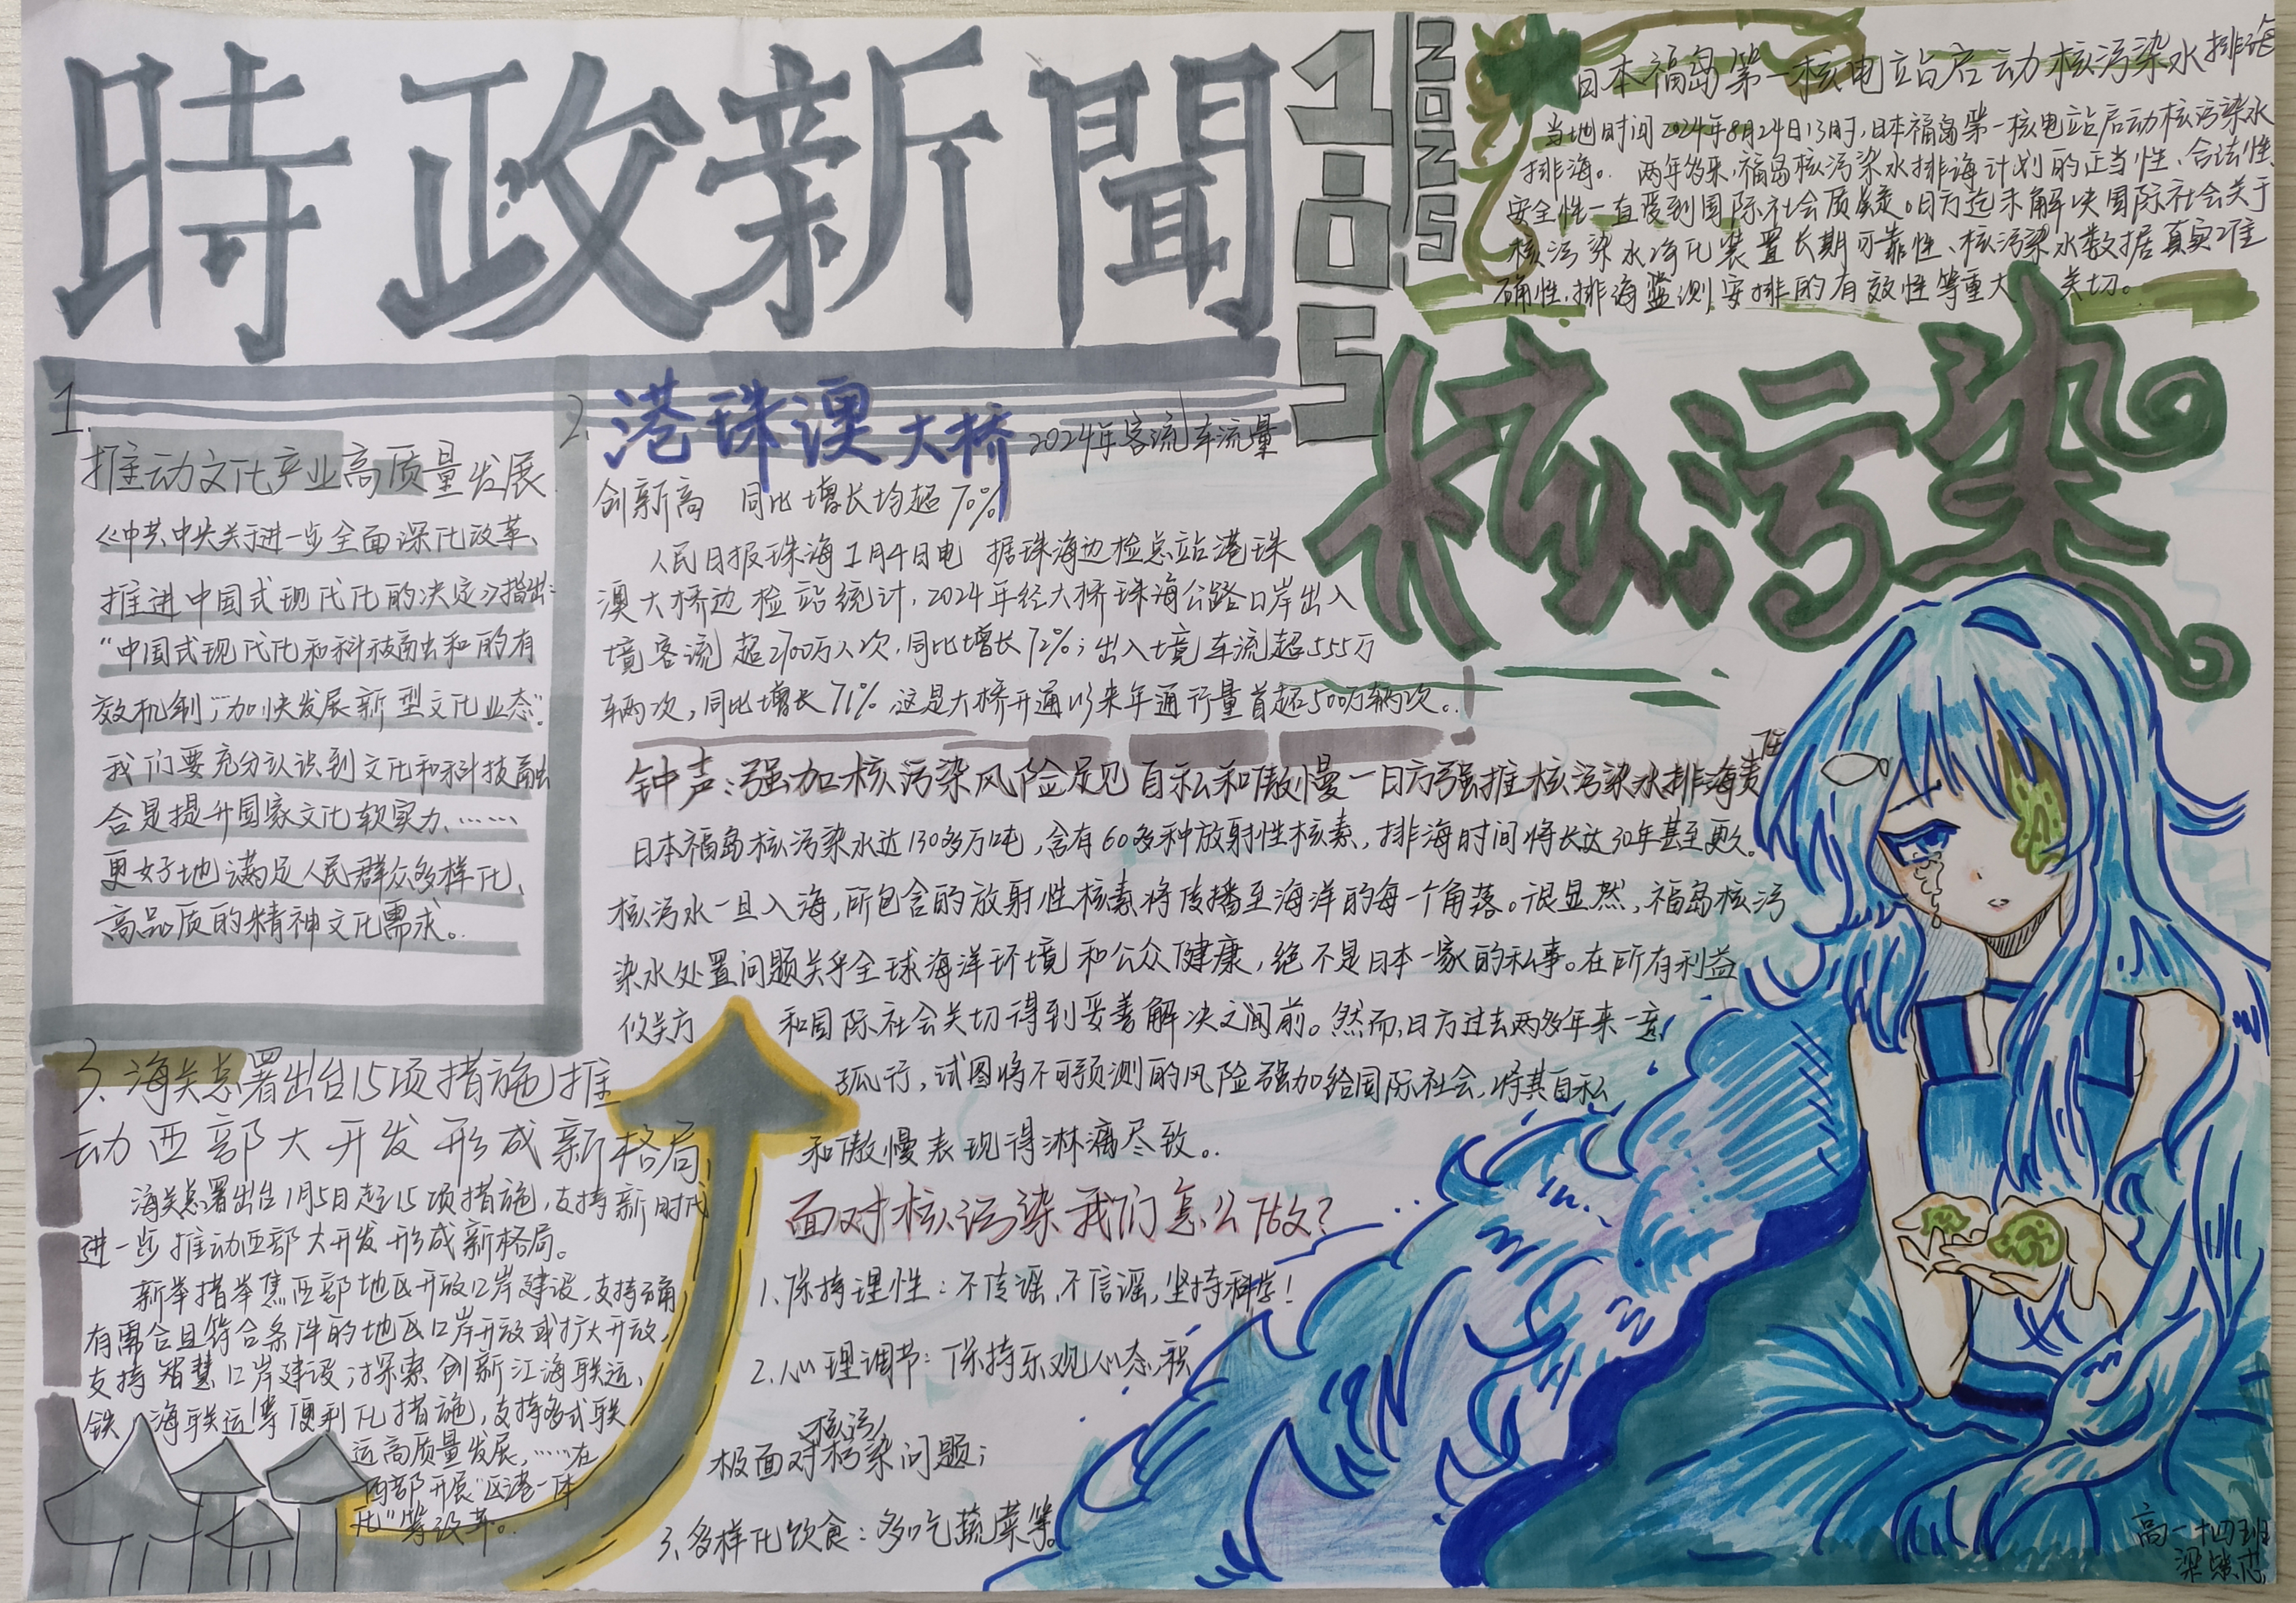 時政新聞
1.05
2025
1.
推动文化产业高质量发展
《中共中央关于进一步全面深化改革、
推进中国式现代化的决定》指出:
"中国式现代化和科技融和的有
效机制","加快发展新型文化业态".
我们要充分认识到文化和科技融
合是提升国家文化软实力、……
更好地满足人民群众多样化、
高品质的精神文化需求。
2.港珠澳大桥 2024年客流车流量
创新高 同比增长均超70%
人民日报珠海1月4日电 据珠海边检总站港珠
澳大桥边检站统计,2024年经大桥珠海公路口岸出入
境客流超2700万人次,同比增长72%;出入境车流超555万
车辆次,同比增长71%.这是大桥开通以来年通行量首超500万辆次。
3.海关总署出台15项措施推
动西部大开发形成新格局
海关总署出台1月5日起15项措施,支持新时代
进一步推动西部大开发形成新格局。
新举措举焦西部地区开放口岸建设、支持确
有需合且符合条件的地区口岸开放或扩大开放,
支持智慧口岸建设;探索创新江海联运、
铁 海联运等便利化措施,支持多式联
运高质量发展,……在
西部开展"区港一体
化"等改革。
日本福岛第一核电站启动核污染水排海
当地时间2024年8月24日13时,日本福岛第一核电站启动核污染水
排海。两年多来,福岛核污染水排海计划的正当性、合法性、
安全性一直受到国际社会质疑。日方迄未解决国际社会关于
核污染水净化装置长期可靠性、核污染水数据真实准
确性,排海监测安排的有效性等重大 关切。
核污染
钟声:强加核污染风险足见自私和傲慢一日方强推核污染水排海责任
日本福岛核污染水达130多万吨,含有60多种放射性核素,排海时间将长达30年甚至更久。
核污水一旦入海,所包含的放射性核素将传播至海洋的每一个角落。很显然,福岛核污
染水处置问题关乎全球海洋环境和公众健康,绝不是日本一家的私事。在所有利益
攸关方 和国际社会关切得到妥善解决之间前。然而,日方过去两多年来一意
孤行,试图将不可预测的风险强加给国际社会,将其自私
和傲慢表现得淋漓尽致。
面对核污染我们怎么做?
1.保持理性:不传谣,不信谣,坚持科学!
2.心理调节:保持乐观心态,积
极面对核污染问题;
3.多样化饮食:多吃蔬菜等。
高一十四班